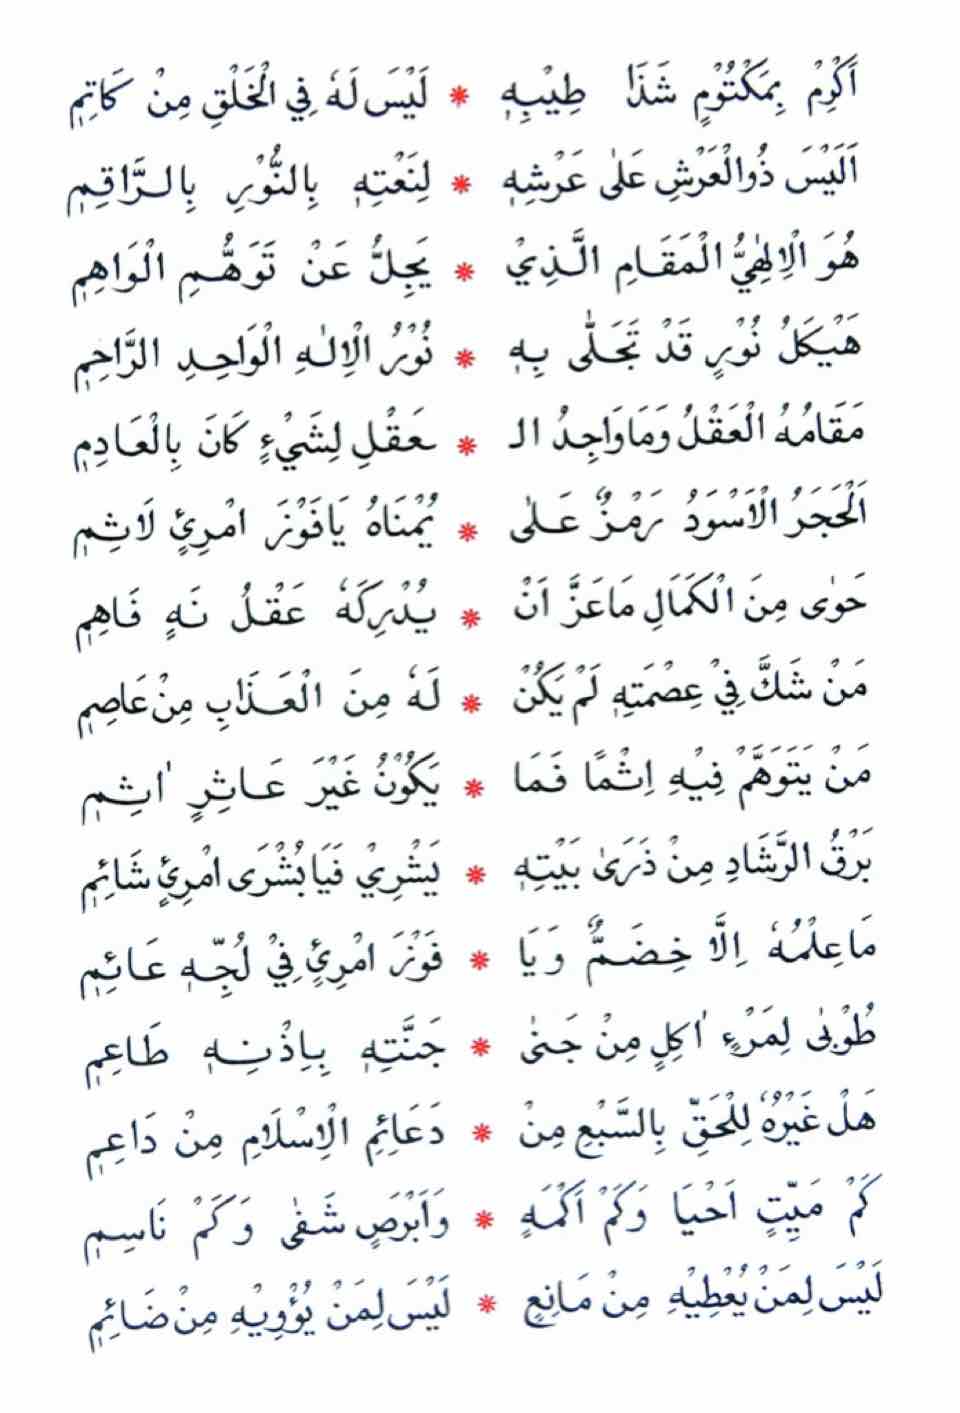 اَكْرِمْ بِمَكْتُوْمٍ شَذَا طِيْبِهٖ * لَيْسَ لَهٗ فِي الْخَلْقِ مِنْ كَاتِمٖ
اَلَيْسَ ذُوالْعَرْشِ عَلٰى عَرْشِهٖ * لِنَعْتِهٖ بِالنُّوْرِ بِالرَّاقِمٖ
هُوَ الْاِلٰهِيُّ الْمَقَامِ الَّذِيْ * يَجِلُّ عَنْ تَوَهُّمِ الْوَاهِمٖ
هَيْكَلُ نُوْرٍ قَدْ تَجَلّٰى بِهٖ * نُوْرُ الْاِلٰهِ الْوَاحِدِ الرَّاحِمٖ
مَقَامُهُ الْعَقْلُ وَمَاوَاجِدُ الـ * ـعَقْلِ لِشَيْءٍ كَانَ بِالْعَادِمٖ
اَلْحَجَرُ الْاَسْوَدُ رَمْزٌ عَلٰى * يُمْنَاهُ يَافَوْزَ امْرِئٍ لَاثِمٖ
حَوٰى مِنَ الْكَمَالِ مَاعَزَّ اَنْ * يُدْرِكَهٗ عَقْلُ نَهٍ فَاهِمٖ
مَنْ شَكَّ فِيْ عِصْمَتِهٖ لَمْ يَكُنْ * لَهٗ مِنَ الْعَذَابِ مِنْ عَاصِمٖ
مَنْ يَتَوَهَّمْ فِيْهِ اِثْمًا فَمَا * يَكُوْنُ غَيْرَ عَاثِرٍ اٰثِمٖ
بَرْقُ الرَّشَادِ مِنْ ذَرَىٰ بَيْتِهٖ * يَشْرِيْ فَيَابُشْرَى امْرِئٍ شَائِمٖ
مَاعِلْمُهٗ اِلَّا خِضَمٌّ وَيَا * فَوْزَ امْرِئٍ فِيْ لُجِّهٖ عَائِمٖ
طُوْبٰى لِمَرْءٍ اٰكِلٍ مِنْ جَنٰى * جَنَّتِهٖ بِاِذْنِهٖ طَاعِمٖ
هَلْ غَيْرُهٗ لِلْحَقِّ بِالسَّبْعِ مِنْ * دَعَائِمِ الْاِسْلَامِ مِنْ دَاعِمٖ
كَمْ مَيِّتٍ اَحْيَا وَكَمْ اَكْمَهٍ * وَاَبْرَصٍ شَفٰى وَكَمْ نَاسِمٖ
لَيْسَ لِمَنْ يُعْطِيْهِ مِنْ مَانِعٍ * لَيْسَ لِمَنْ يُؤْوِيْهِ مِنْ ضَائِمٖ